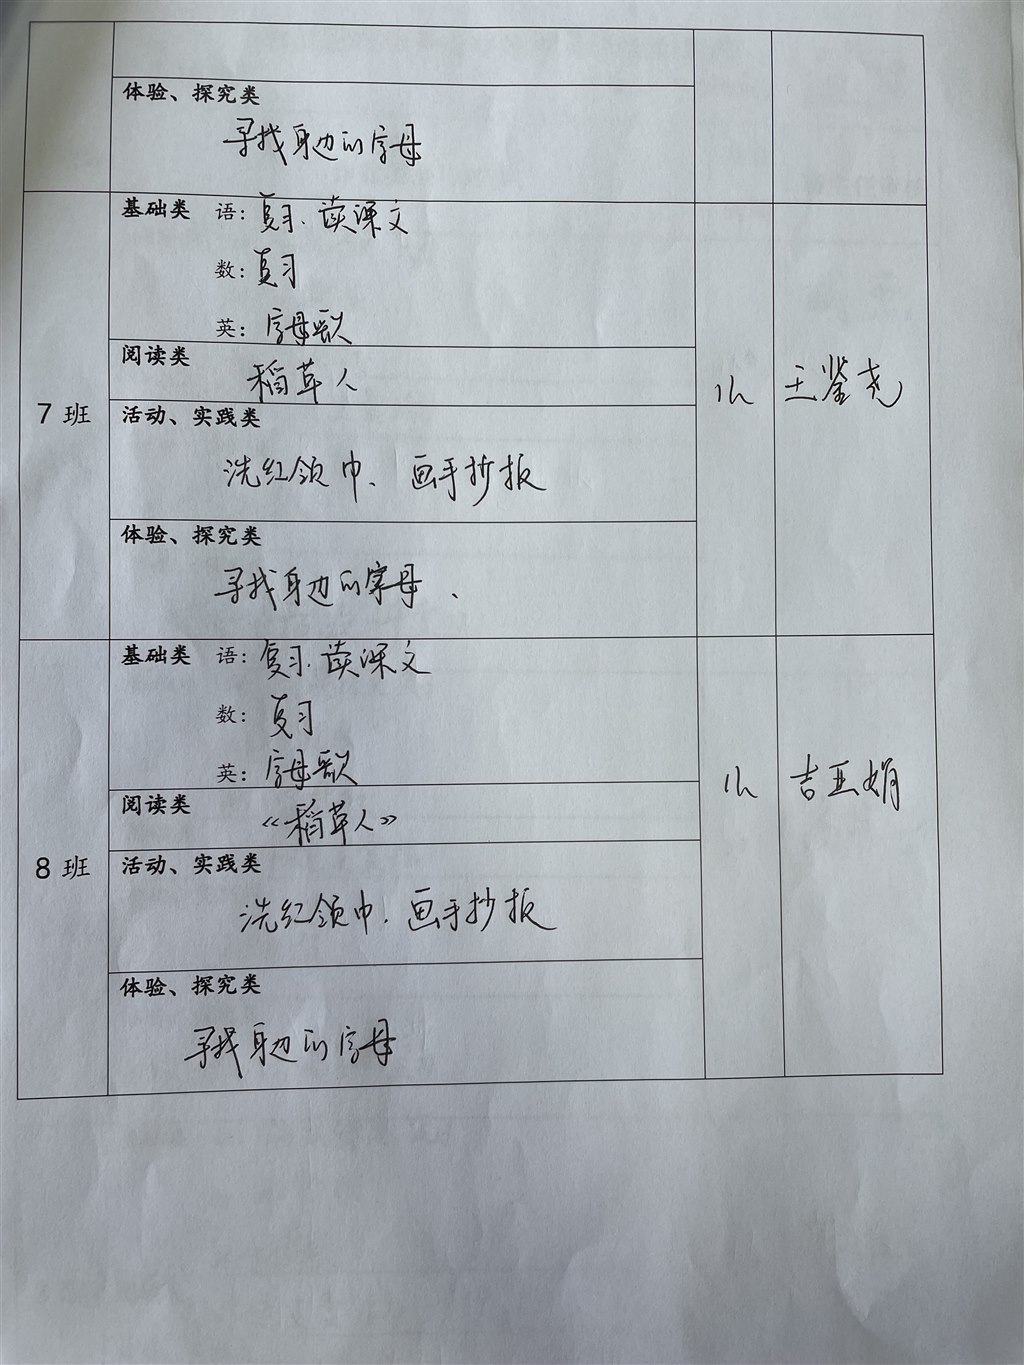 体验、探究类
寻找身边的字母
7班
基础类 语: 复习.读课文
数: 复习
英: 字母歌
阅读类
稻草人
活动、实践类
洗红领巾、画手抄报
体验、探究类
寻找身边的字母、
1h
王鉴尧
8班
基础类 语: 复习.读课文
数: 复习
英: 字母歌
阅读类
《稻草人》
活动、实践类
洗红领巾.画手抄报
体验、探究类
寻找身边的字母
1h
吉亚娟